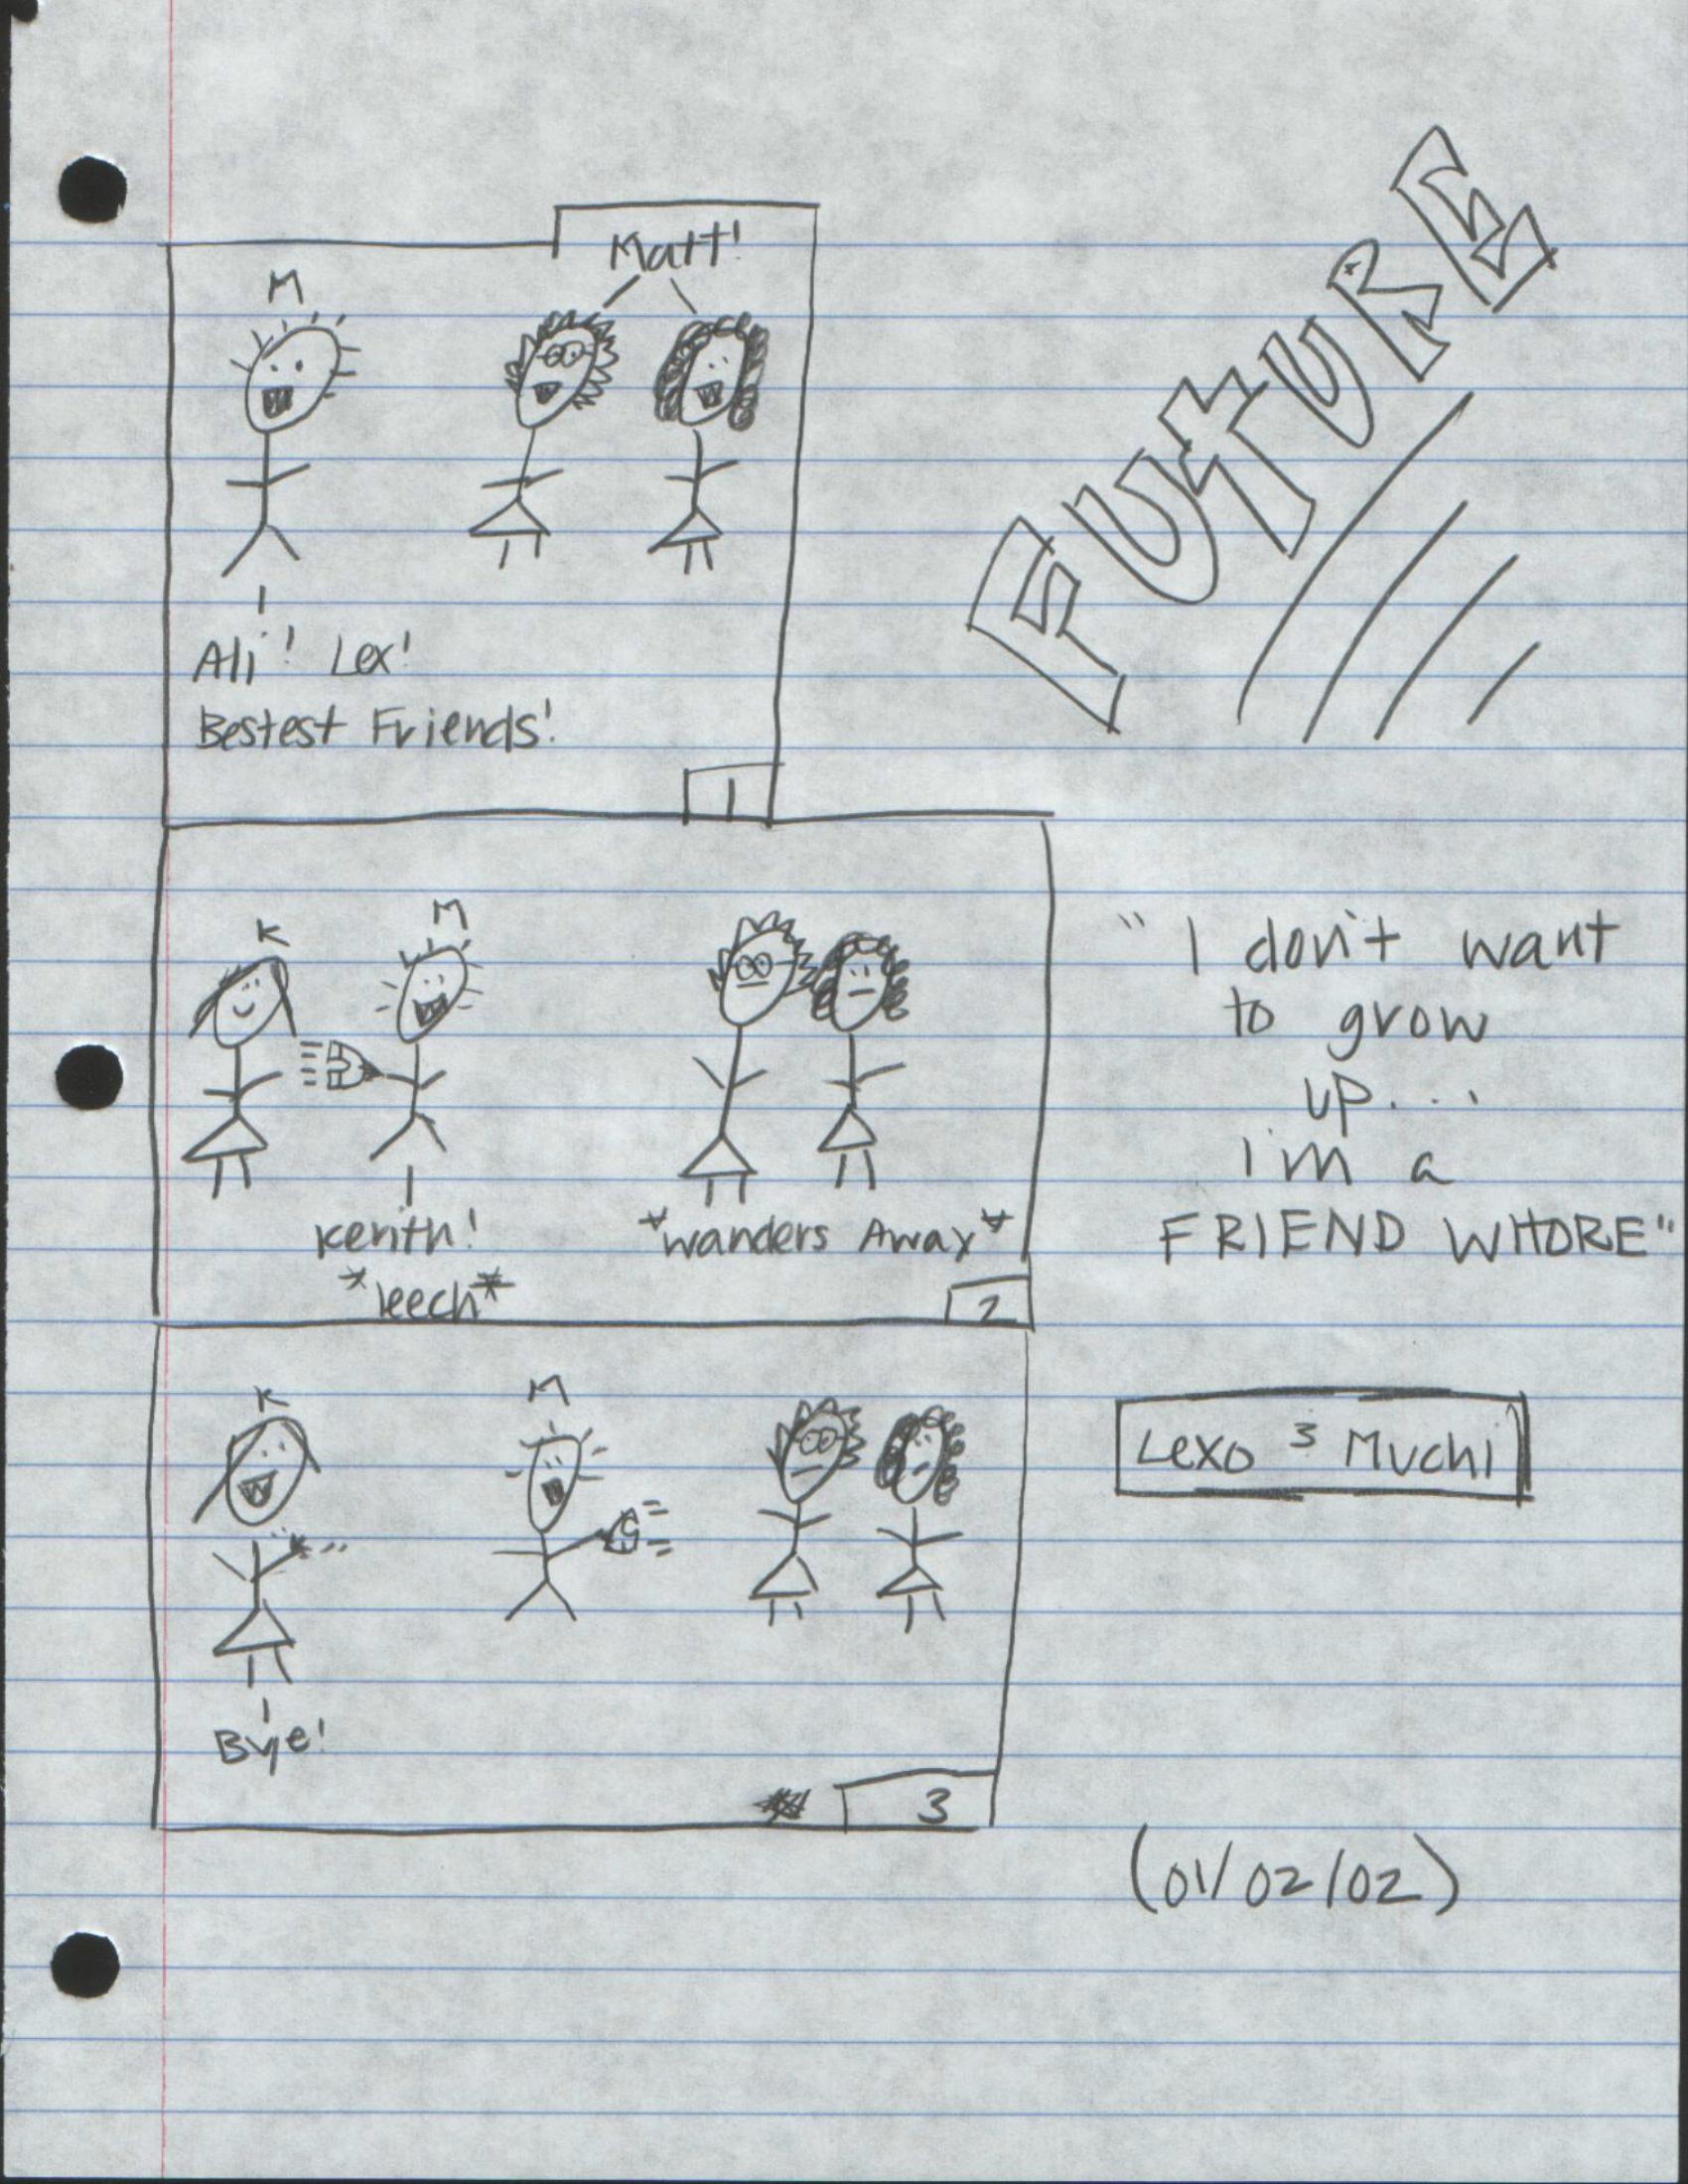 FUTURE
Matt!
M
Ali! Lex!
Bestest Friends!
1
K
M
Kerith!
*leech*
*wanders Away*
2
"I don't want
to grow
up...
i'm a
FRIEND WHORE"
K
M
Bye!
3
Lexo 3 Muchi
(01/02/02)